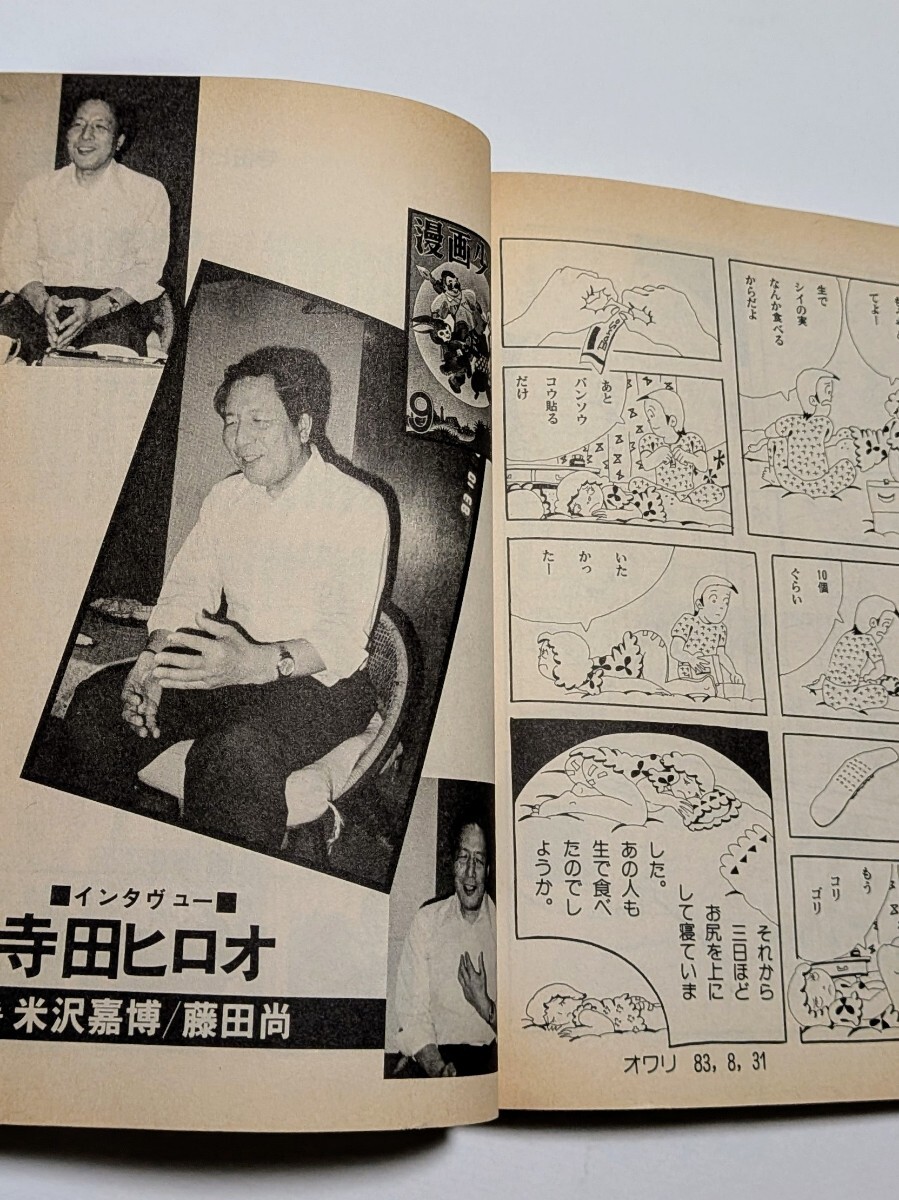 漫画少
9
■インタヴュー■
寺田ヒロオ
米沢嘉博/藤田尚
てよー
生で
シイの実
なんか食べる
からだよ
10個
ぐらい
もう
コリ
ゴリ
あと
バンソウ
コウ貼る
だけ
いた
かっ
たー
それから
三日ほど
お尻を上に
して寝ていま
した。
あの人も
生で食べ
たのでし
ようか。
オワリ 83, 8, 31